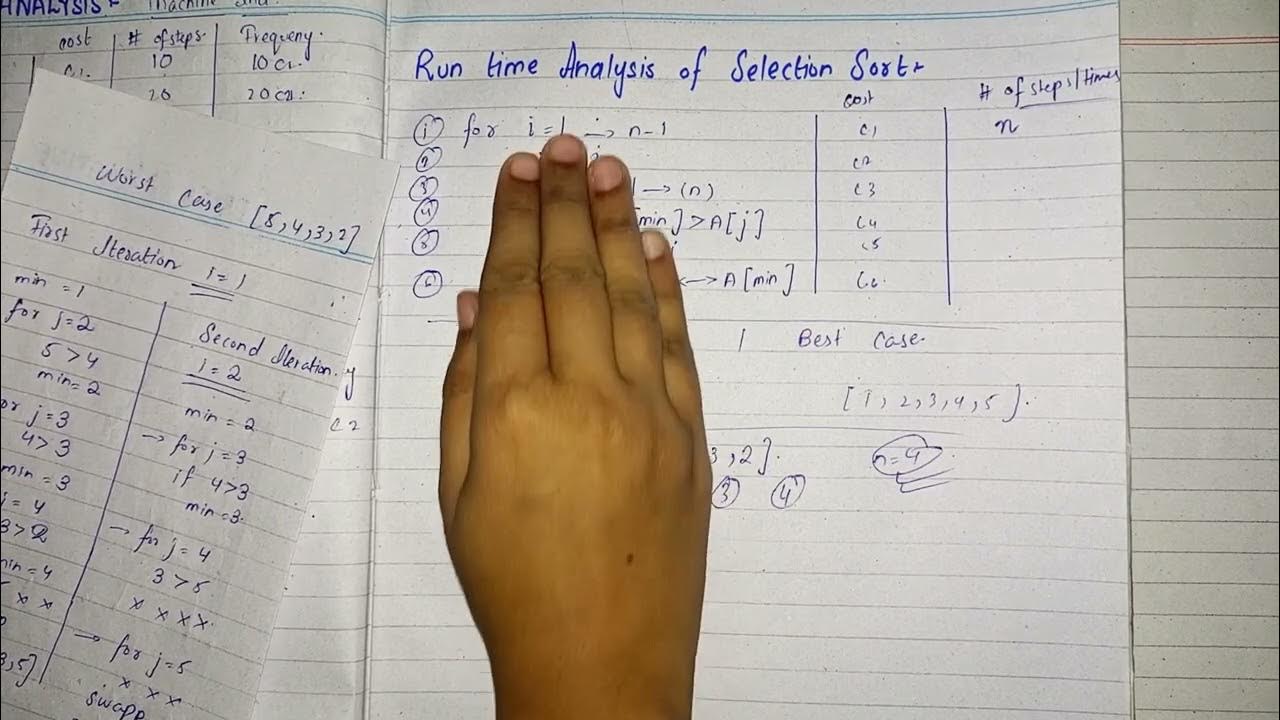 ANALYSIS:-
cost # of steps. Frequency.
C1. 10 10 C1.
20 20 C2.
Worst Case [5,4,3,2]
First Iteration i=1
min =1
for j=2
5 > 4
min=2
j=3
4 > 3
min = 3
= 4
3 > 2
min=4
x x
3,5]
Second Iteration.
i = 2
min = 2
→ for j = 3
if 4>3
min=3.
→ for j = 4
3 > 5
x x x x.
→ for j=5
x x x
Swapp
C2
Run time Analysis of Selection Sort:-
cost # of steps/times
① for i=1 → n-1 C1 n
② C2
③ 1 → (n) C3
④ min] > A[j] C4
⑤ C5
⑥ ↔ A[min] C6.
1 Best Case.
[1, 2, 3, 4, 5].
3, 2]. n=4
③ ④